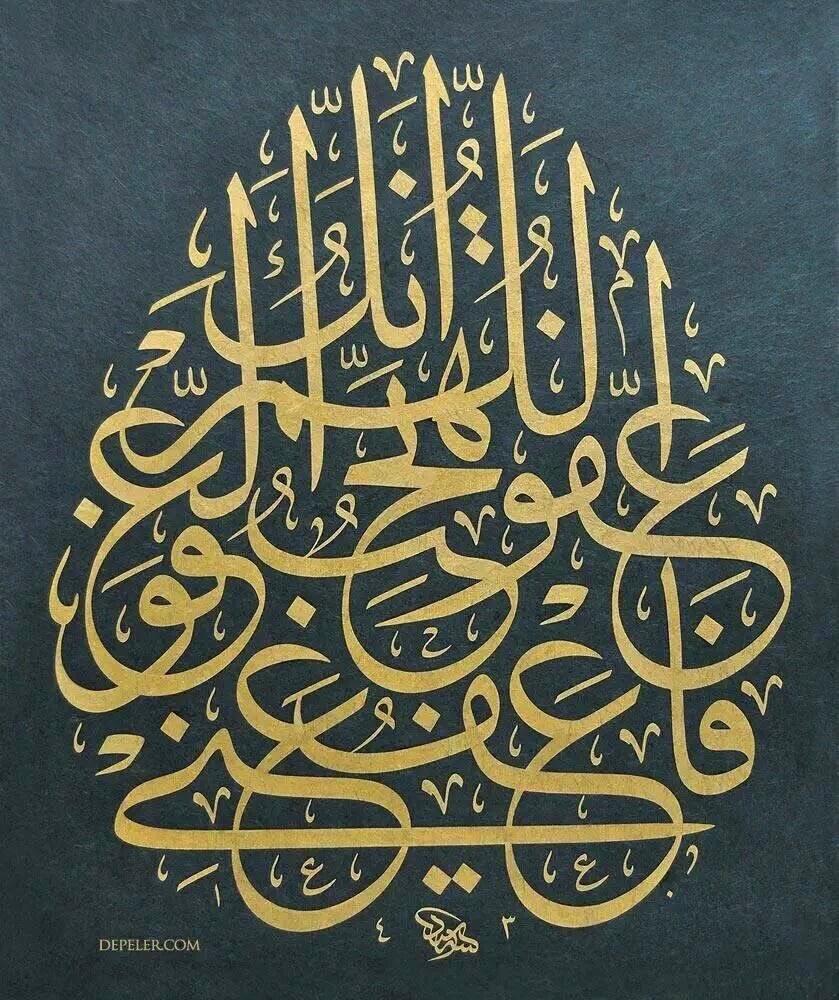 اللهم إنك عفو تحب العفو فاعف عني
٤ ٣
DEPELER.COM